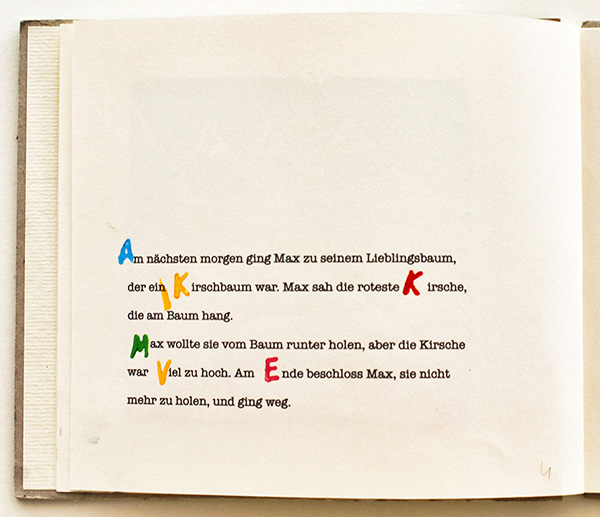 Am nächsten morgen ging Max zu seinem Lieblingsbaum,
der ein Kirschbaum war. Max sah die roteste Kirsche,
die am Baum hang.
Max wollte sie vom Baum runter holen, aber die Kirsche
war Viel zu hoch. Am Ende beschloss Max, sie nicht
mehr zu holen, und ging weg.
4